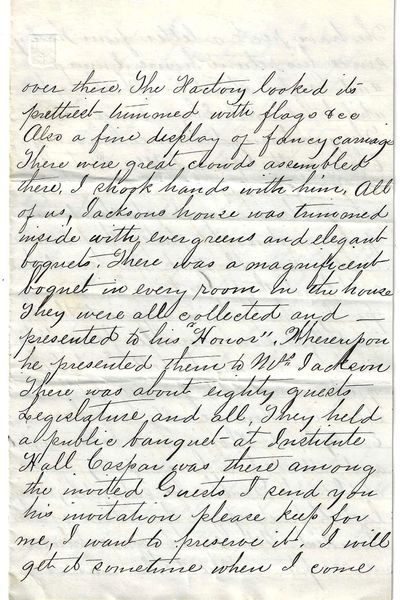 over there. The Factory looked its
prettiest trimmed with flags &cc
Also a fine display of fancy carriage
There were great crowds assembled
there. I shook hands with him. All
of us, Jacksons house was trimmed
inside with, evergreens and elegant
boquets. There was a magnificent
boquet in every room in the house
They were all collected and —
presented to his "Honor". Whereupon
he presented them to Mrs Jackson
There was about eighty guests
Legislature and all, They held
a public banquet at Institute
Hall Caspar was there among
the invited Guests I send you
his invitation please keep for
me, I want to preserve it. I will
get it sometime when I come